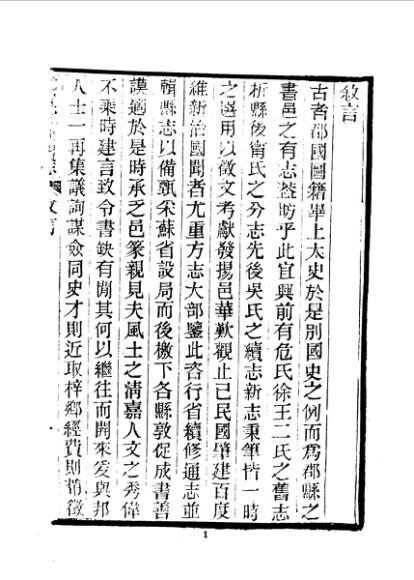 敘言
古者郡國圖籍畢上太史於是別國史之例而爲郡縣之
書邑之有志蓋昉乎此宜興前有危氏徐王二氏之舊志
析縣後甯氏之分志先後吳氏之續志新志秉筆皆一時
之選用以徵文考獻發揚邑華歎觀止已民國肇建百度
維新治國聞者尤重方志大部鑒此咨行省續修通志並
輯縣志以備甄采蘇省設局而後檄下各縣敦促成書善
謨適於是時承乏邑篆親見夫風土之清嘉人文之秀偉
不乘時建言政令書缺有閒其何以繼往而開來爰與邦
人士一再集議詢謀僉同史才則近取梓鄉經費則蒱徵
敘言
1